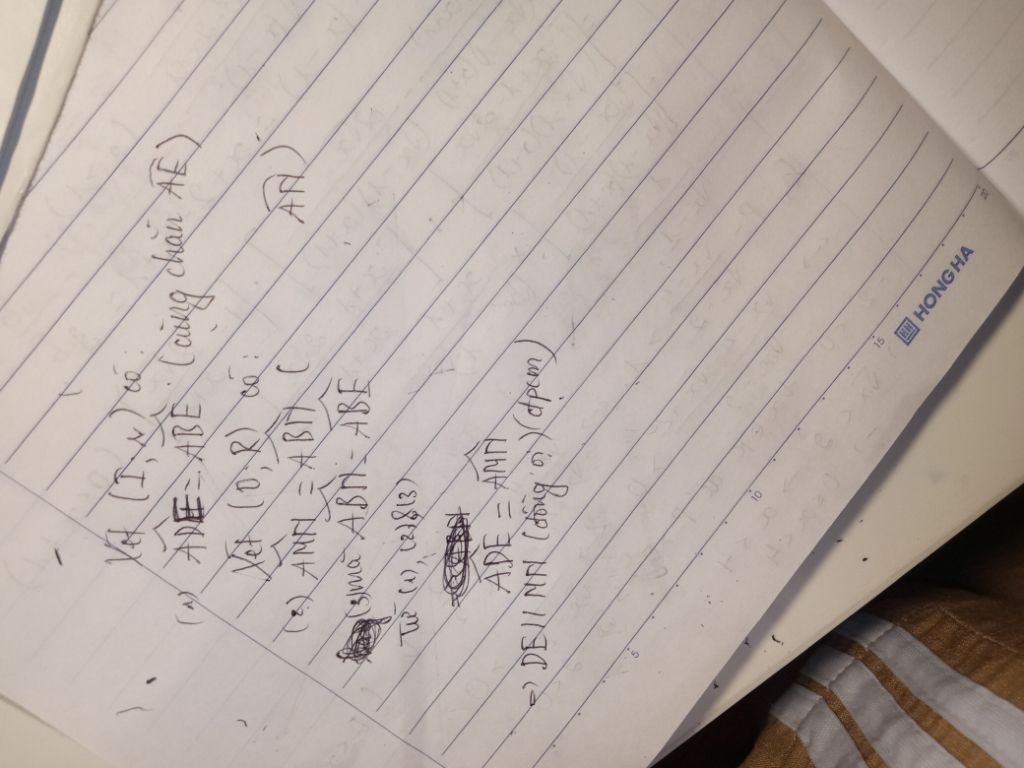 Xét (I, r) có:
(1) ADE = ABE (cùng chắn AE)
Xét (O, R) có:
(2) AMN = ABN ( AN)
(3) mà ABN = ABE
Từ (1), (2) & (3)
ADE = AMN
=) DE // MN (đồng vị) (đpcm)
5
10
15
20
HONG HA